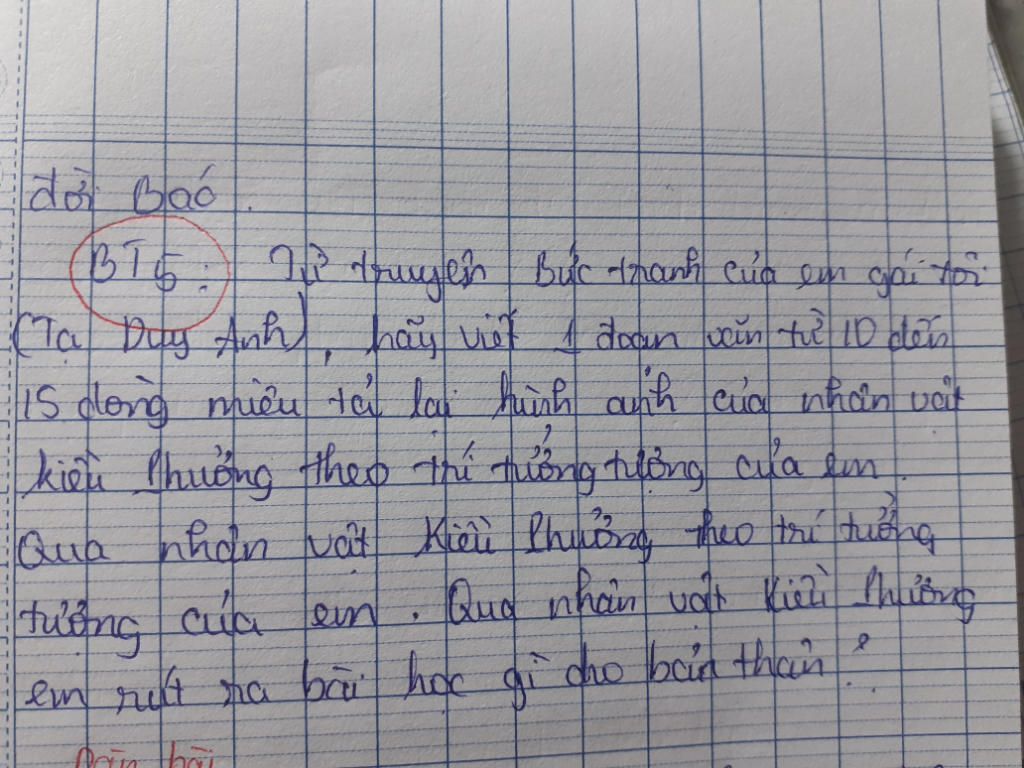 đời Baó.
BT5: Từ truyện Bức tranh của em gái tôi
(Tạ Duy Anh), hãy viết 1 đoạn văn từ 10 đến
15 dòng miêu tả lại hình ảnh của nhân vật
Kiều Phương theo trí tưởng tượng của em.
Qua nhân vật Kiều Phương theo trí tưởng
tượng của em. Qua nhân vật Kiều Phương
em rút ra bài học gì cho bản thân?
Dàn bài